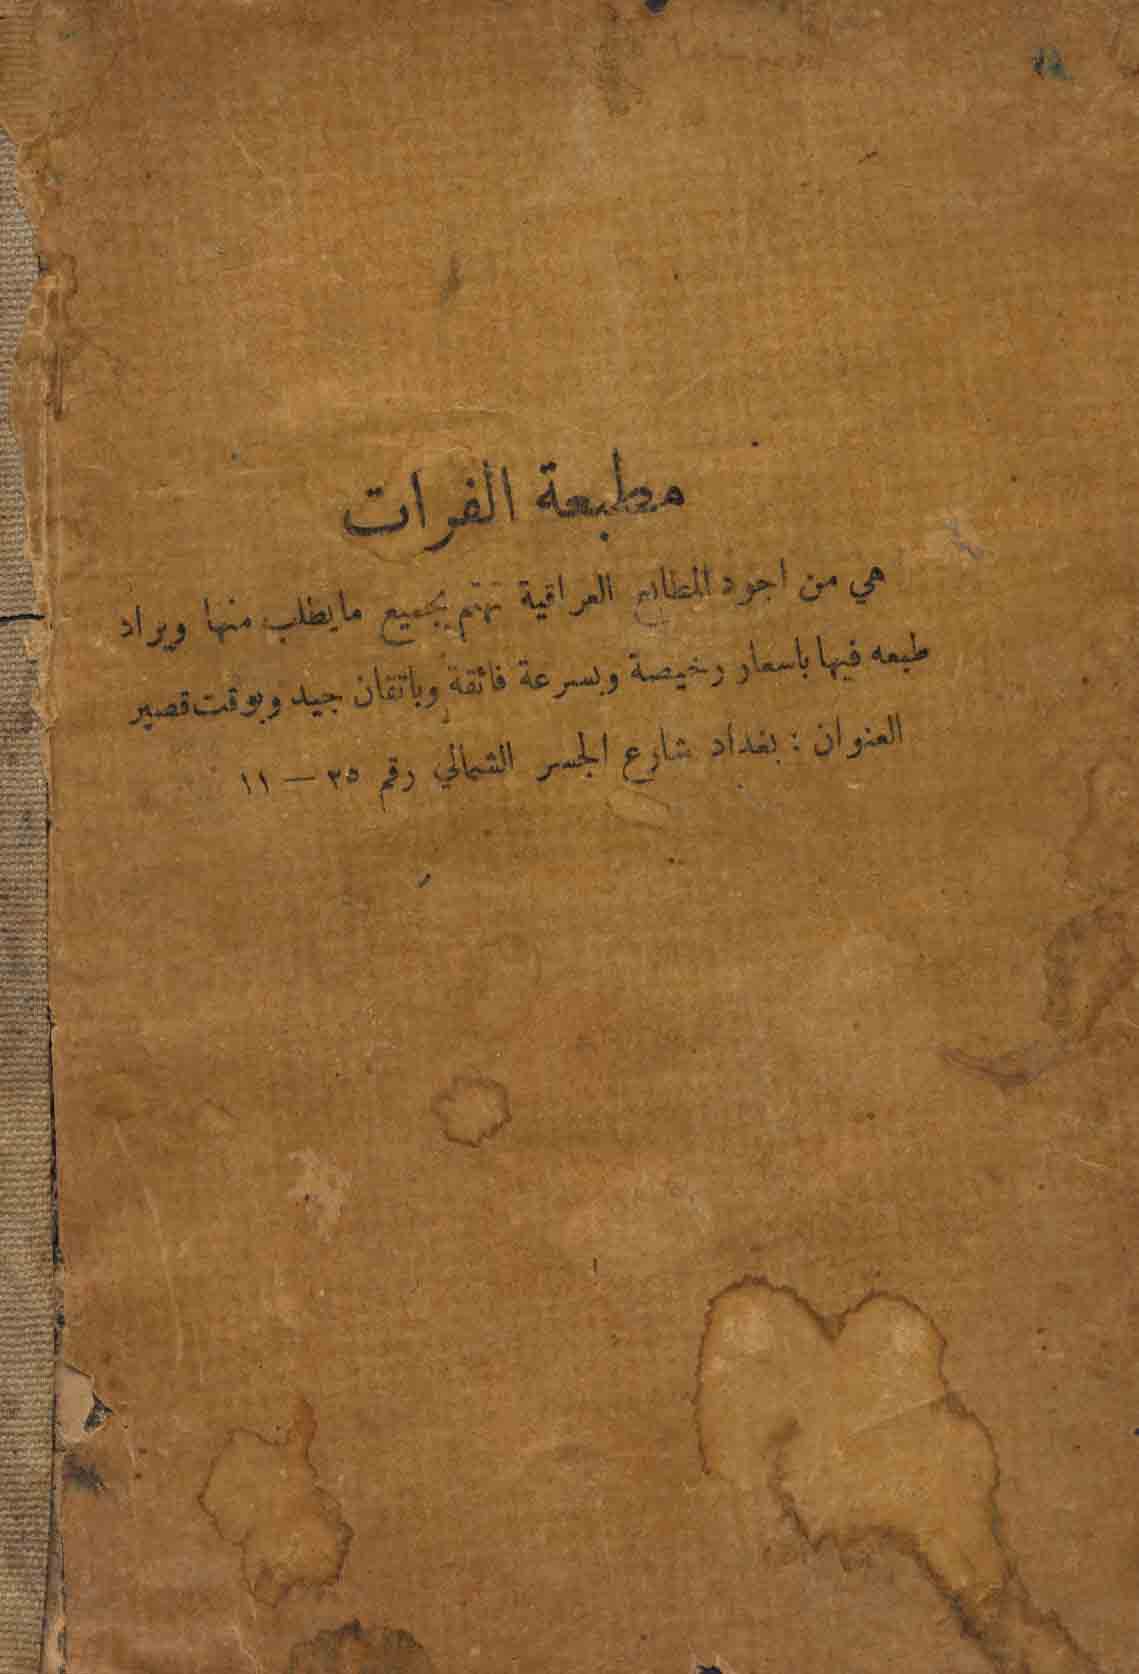 مطبعة الفرات
هي من اجود المطابع العراقية تهتم بجميع مايطلب منها ويراد
طبعه فيها باسعار رخيصة وبسرعة فائقة وباتقان جيد وبوقت قصير
العنوان : بغداد شارع الجسر الشمالي رقم ٣٥ — ١١